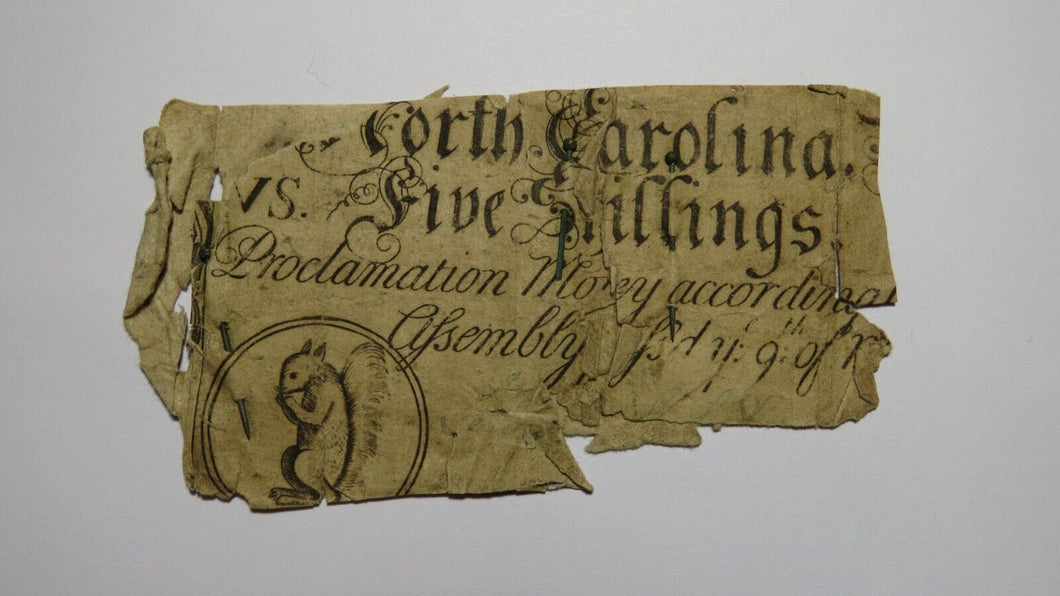 North Carolina.
VS. Five Shillings
Proclamation Money according
Assembly pass'd yͤ 9.th of